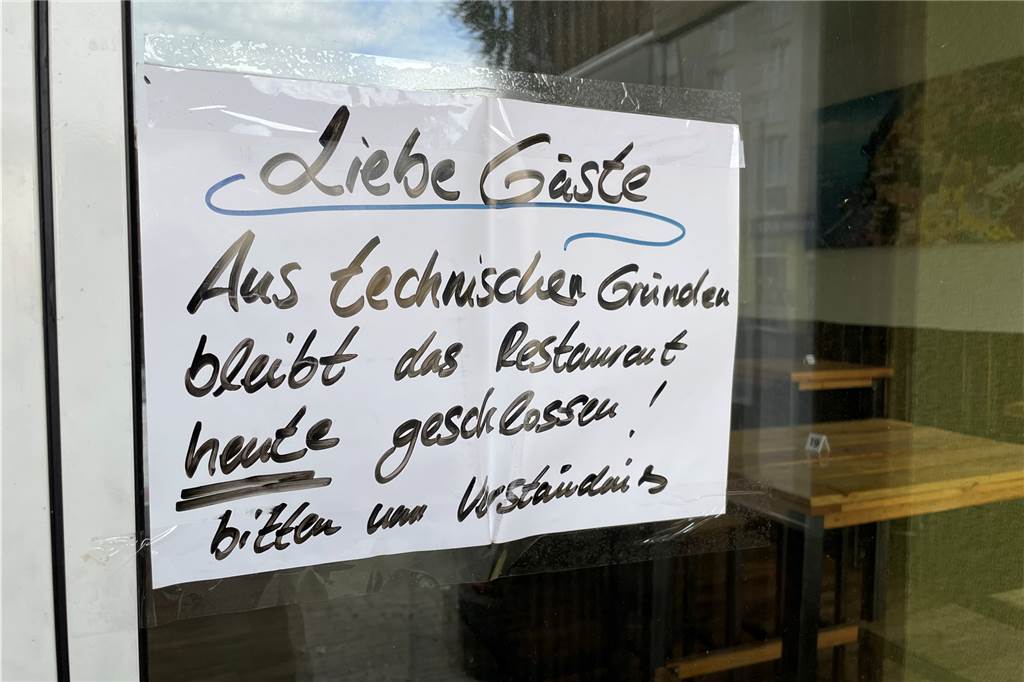 Liebe Gäste
Aus technischen Gründen
bleibt das Restaurant
heute geschlossen!
bitten um Verständnis